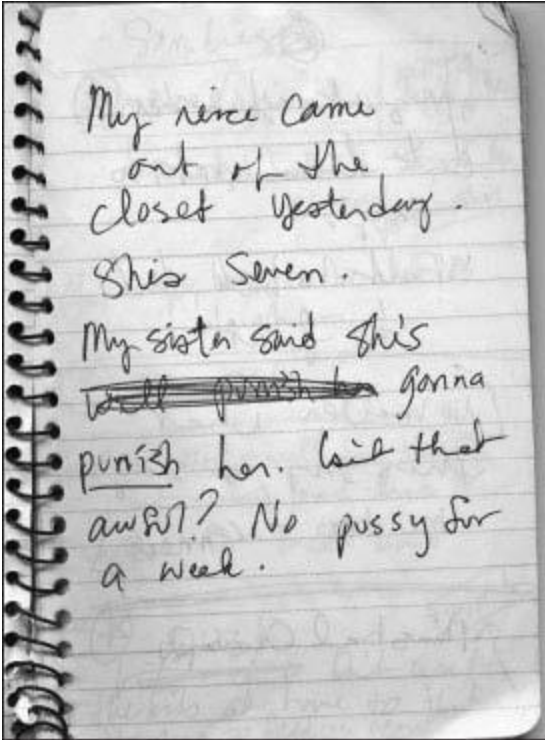 My niece came
out of the
closet yesterday.
She's seven.
My sister said she's
gonna
punish her. Isn't that
awful? No pussy for
a week.